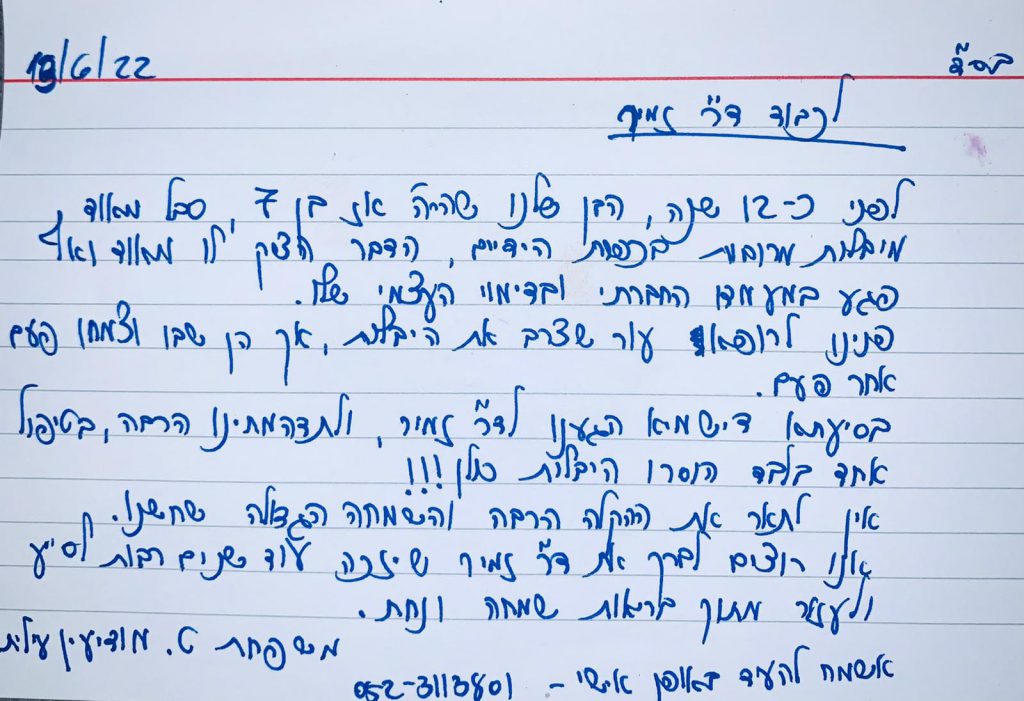 בס"ד 19/6/22
לכבוד ד"ר זמיר
לפני כ-12 שנה, הבן שלנו שהיה אז בן 7, סבל מאוד
מיבלות מרובות בכפות הידיים, הדבר הציק לו מאוד ואף
פגע במעמדו החברתי ובדימוי העצמי שלו.
פנינו לרופא עור שצרב את היבלות, אך הן שבו וצמחו פעם
אחר פעם.
בסיעתא דישמיא הגענו לד"ר זמיר, ולתדהמתינו הרבה, בטיפול
אחד בלבד הוסרו היבלות כולן!!!
אין לתאר את ההקלה הרבה והשמחה הגדולה שחשנו.
אנו רוצים לברך את ד"ר זמיר שיזכה עוד שנים רבות לסייע
ולעזור מתוך בריאות שמחה ונחת.
משפחת ט. מודיעין עילית
אשמח להעיד באופן אישי - 052-3113801